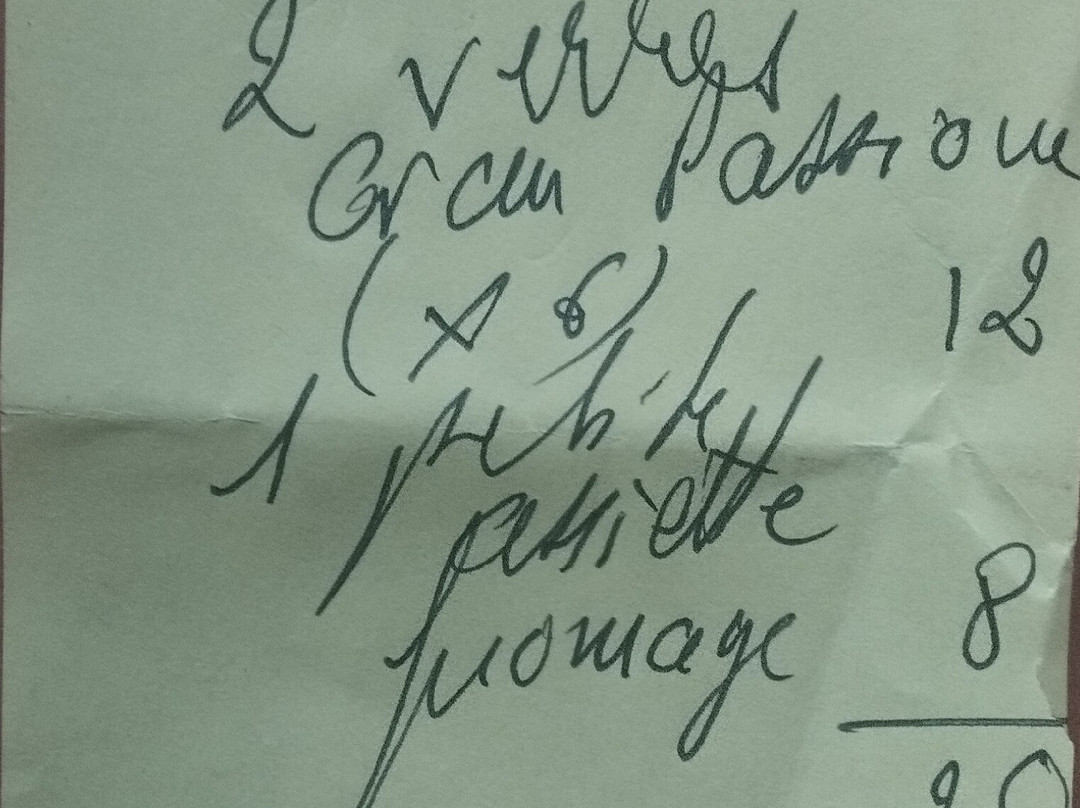 2 verres
Gran Passione
(x 6) 12
1 petite
assiette
fromage 8
20